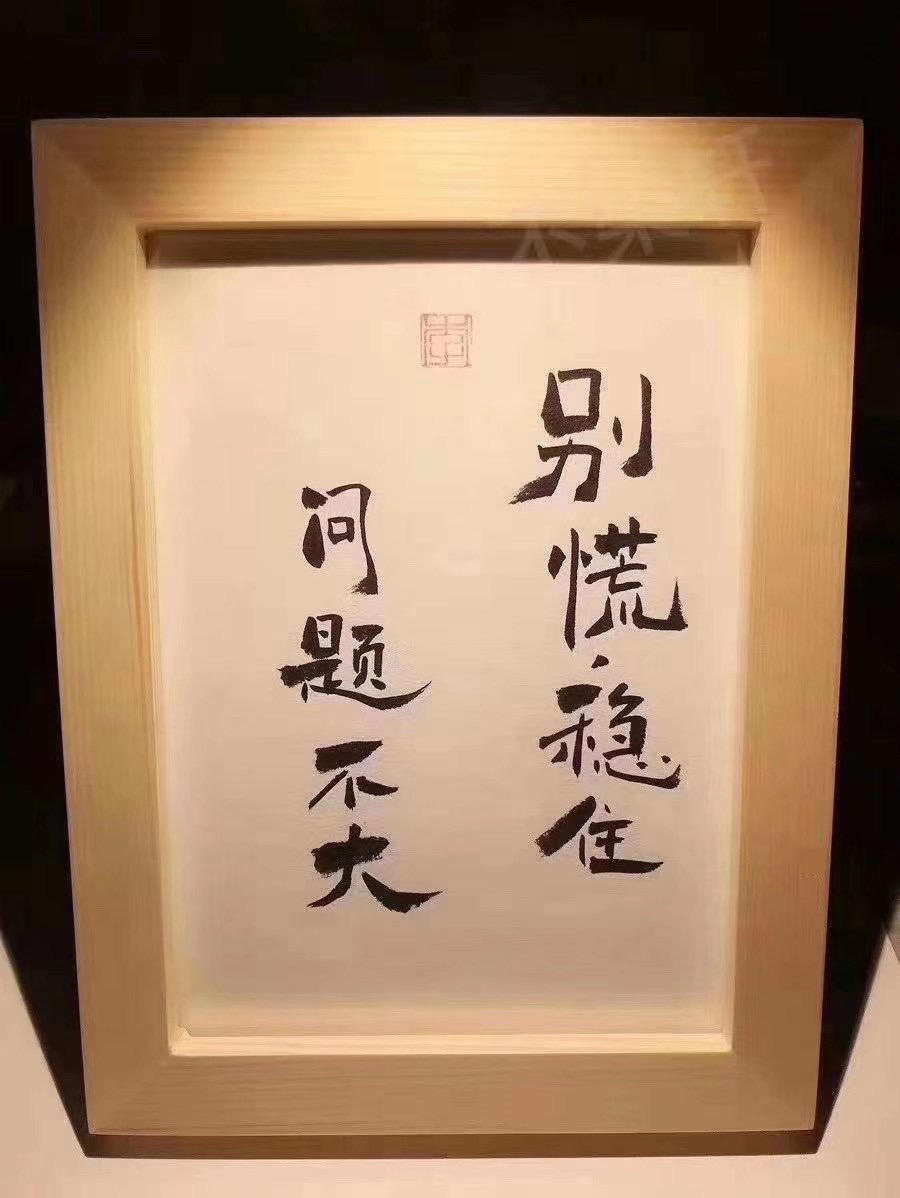 别慌、稳住
问题不大